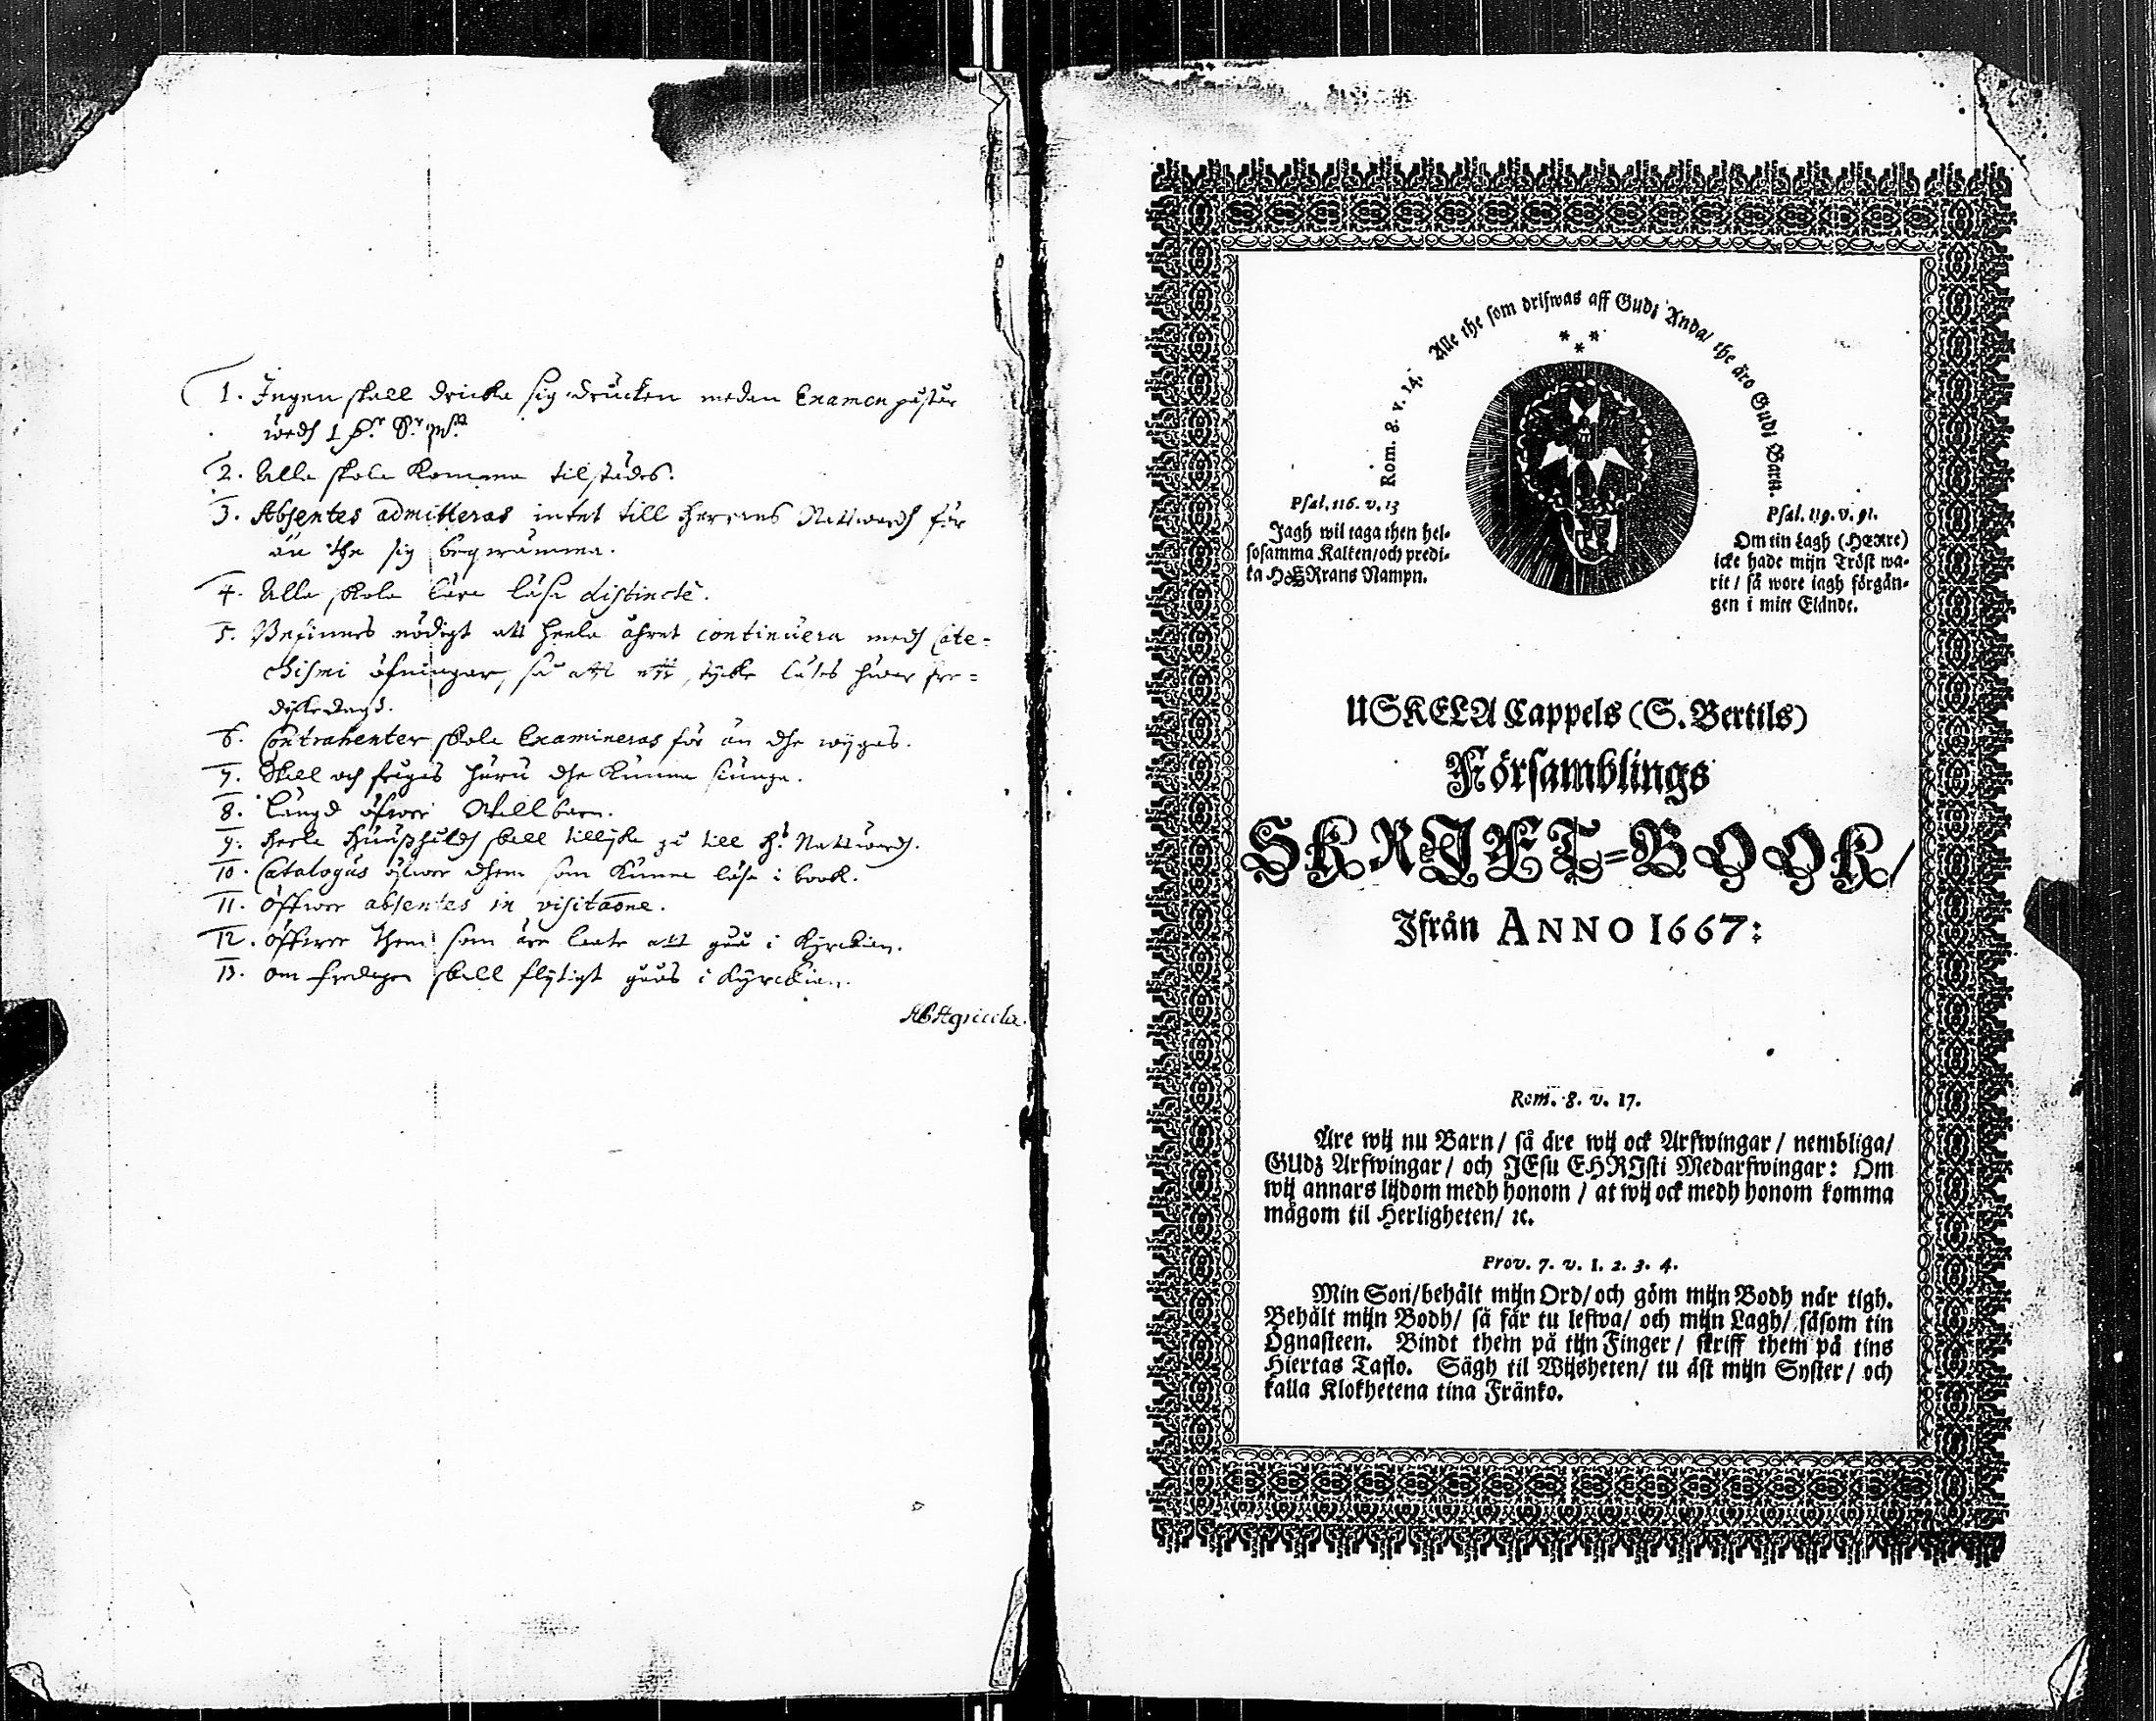 1. Ingen skall dricka sig drucken medan Examen påstår
wedh 1 
2. Alla skola komma tilstädes.
3. Absentes admitteras intet till Herrans Nattwardh för
än the sig beqwämma.
4. Alla skola lära läsa distinctè.
5. Befinnes nödigt att heela åhret continuera medh Cate-
chismi öfningar, så att ett stycke läses hwar pre-
dikedagh.
6. Contrahenter skola Examineras för än dhe wijgas.
7. Skall och frågas huru dhe kunna siunga.
8. Längd öfwer Skallbarn.
9. Heela Huusshåldh skall tillijka gå till H. Nattwardh.
10. Catalogus öfwer dhem som kunna läsa i book.
11. Öffwer absentes in visitaōne.
12. Öffwer them som äre laate att gåå i Kyrckian.
13. Om fredagen skall flijtigt gåås i Kyrckian.
AB Agricola.
Rom. 8. v. 14. Alle the som drifwas aff Gudz Anda/ the äro Gudz Barn.
Psal. 116. v. 13
Jagh wil taga then hel-
sosamma Kalken/och predi-
ka HERrans Nampn.
Psal. 119. v. 91.
Om tin Lagh (HERre)
icke hade mijn Tröst wa-
rit/ så wore iagh förgån-
gen i mitt Elände.
USKELA Cappels (S. Bertils)
Församblings
SKRIFT-BOOK/
Ifrån ANNO 1667:
Rom. 8. v. 17.
Äre wij nu Barn/ så äre wij ock Arfwingar/ nembliga/
GUdz Arfwingar/ och JEsu CHRIsti Medarfwingar: Om
wij annars lijdom medh honom/ at wij ock medh honom komma
mågom til Herligheten/ ꝛc.
Prov. 7. v. 1. 2. 3. 4.
Min Son/behålt mijn Ord/och göm mijn Bodh när tigh.
Behålt mijn Bodh/ så får tu lefwa/ och mijn Lagh/ såsom tin
Ögnasteen. Bindt them på tijn Finger/ skriff them på tins
Hiertas Taflo. Sägh til Wijsheten/ tu äst mijn Syster/ och
kalla Klokhetena tina Fränko.